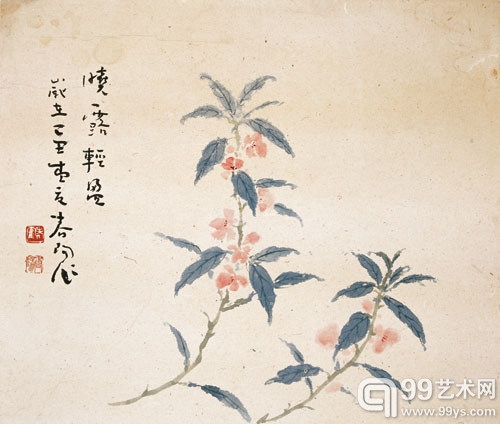 曉露輕盈
歲在丁丑
作
99艺术网
www.99ys.com